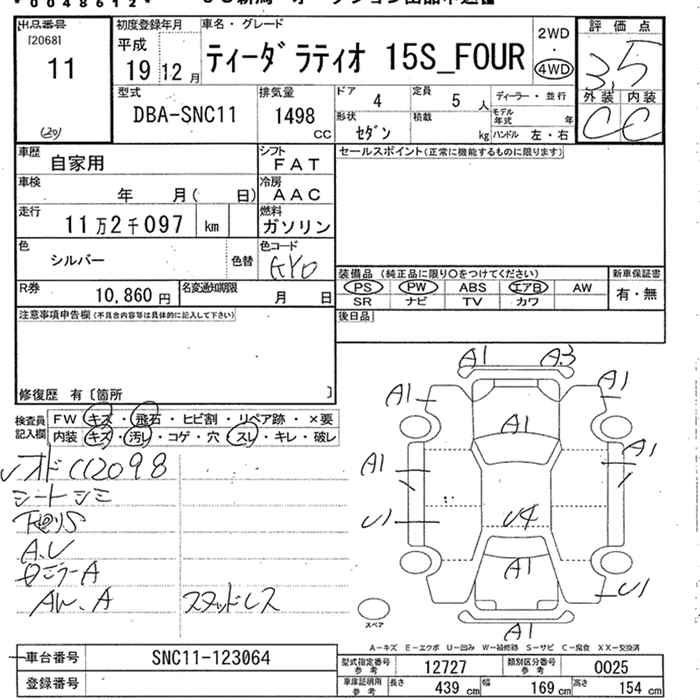 *0048612*
出品番号 初度登録年月 車名・グレード 2WD 評価点
[2068]
11 平成 19 12月 ティーダラティオ 15S_FOUR 4WD 3.5
型式 排気量 ドア 4 定員 5人 ディーラー・並行 外装 内装
DBA-SNC11 1498 cc 形状 セダン 積載 kg モデル年式 年 ハンドル 左・右 C C
車歴 自家用 シフト FAT セールスポイント(正常に機能するものに限ります)
車検 年 月( 日) 冷房 AAC
走行 11万2千097 km 燃料 ガソリン
色 シルバー 色替 色コード KY0
装備品(純正品に限り○をつけてください) 新車保証書
R券 10,860円 名変通知期限 月 日 PS PW ABS エアB AW 有・無
SR ナビ TV カワ
注意事項申告欄(不具合内容等は具体的に記入して下さい) 後日品
修復歴 有〔箇所 〕
A1 A3
A1 A1
検査員記入欄 FW キズ・飛石・ヒビ割・リペア跡・×要
内装 キズ・汚レ・コゲ・穴・スレ・キレ・破レ
A1
A1 A1
オド112098
シートシミ
U1 U4
A.U
A1
ミラーA
U1
AW.A スタッドレス
スペア
A1
A-キズ E-エクボ U-凹み W-補修跡 S-サビ C-腐食 XX-交換済
車台番号 SNC11-123064 型式指定番号 参考 12727 類別区分番号 参考 0025
登録番号 車庫証明用 参考 長さ 439cm 幅 169cm 高さ 154cm